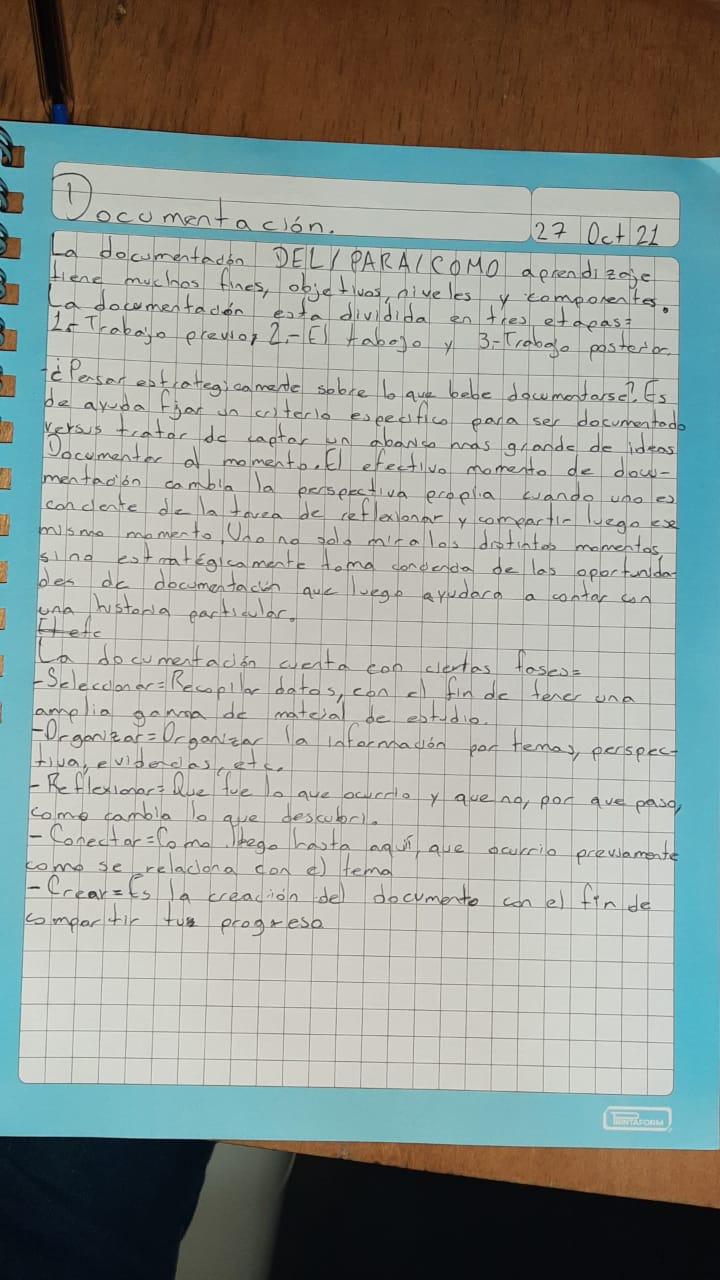 Documentación.
27 Oct 21
La documentación DEL/PARA/COMO aprendizaje
tiene muchos fines, objetivos, niveles y componentes.
La documentación esta dividida en tres etapas=
1.- Trabajo previo, 2.- El tabajo y 3.- Trabajo posterior.
-¿Pensar estrategicamente sobre lo que bebe documentarse?. Es
de ayuda fijar un criterio especifico para ser documentado
versus tratar de captar un abanico mas grande de ideas
Documentar al momento. El efectivo momento de docu-
mentación cambia la perspectiva propia cuando uno es
conciente de la tarea de reflexionar y compartir luego ese
mismo momento, Uno no solo mira los distintos momentos,
sino estratégicamente toma conciencia de las oportunida-
des de documentación que luego ayudara a contar con
una historia particular.
El efc
La documentación cuenta con ciertas fases=
-Seleccionar= Recopilar datos, con el fin de tener una
amplia gama de material de estudio.
-Organizar= Organizar la información por temas, perspec-
tiva, evidencias, etc.
- Reflexionar= Que fue lo que ocurrio y que no, por que paso,
como cambia lo que descubri.
- Conectar= Como llego hasta aquí, que ocurrio previamente
como se relaciona con el tema
- Crear= Es la creación del documento con el fin de
compartir tu progreso
PRINTAFORM